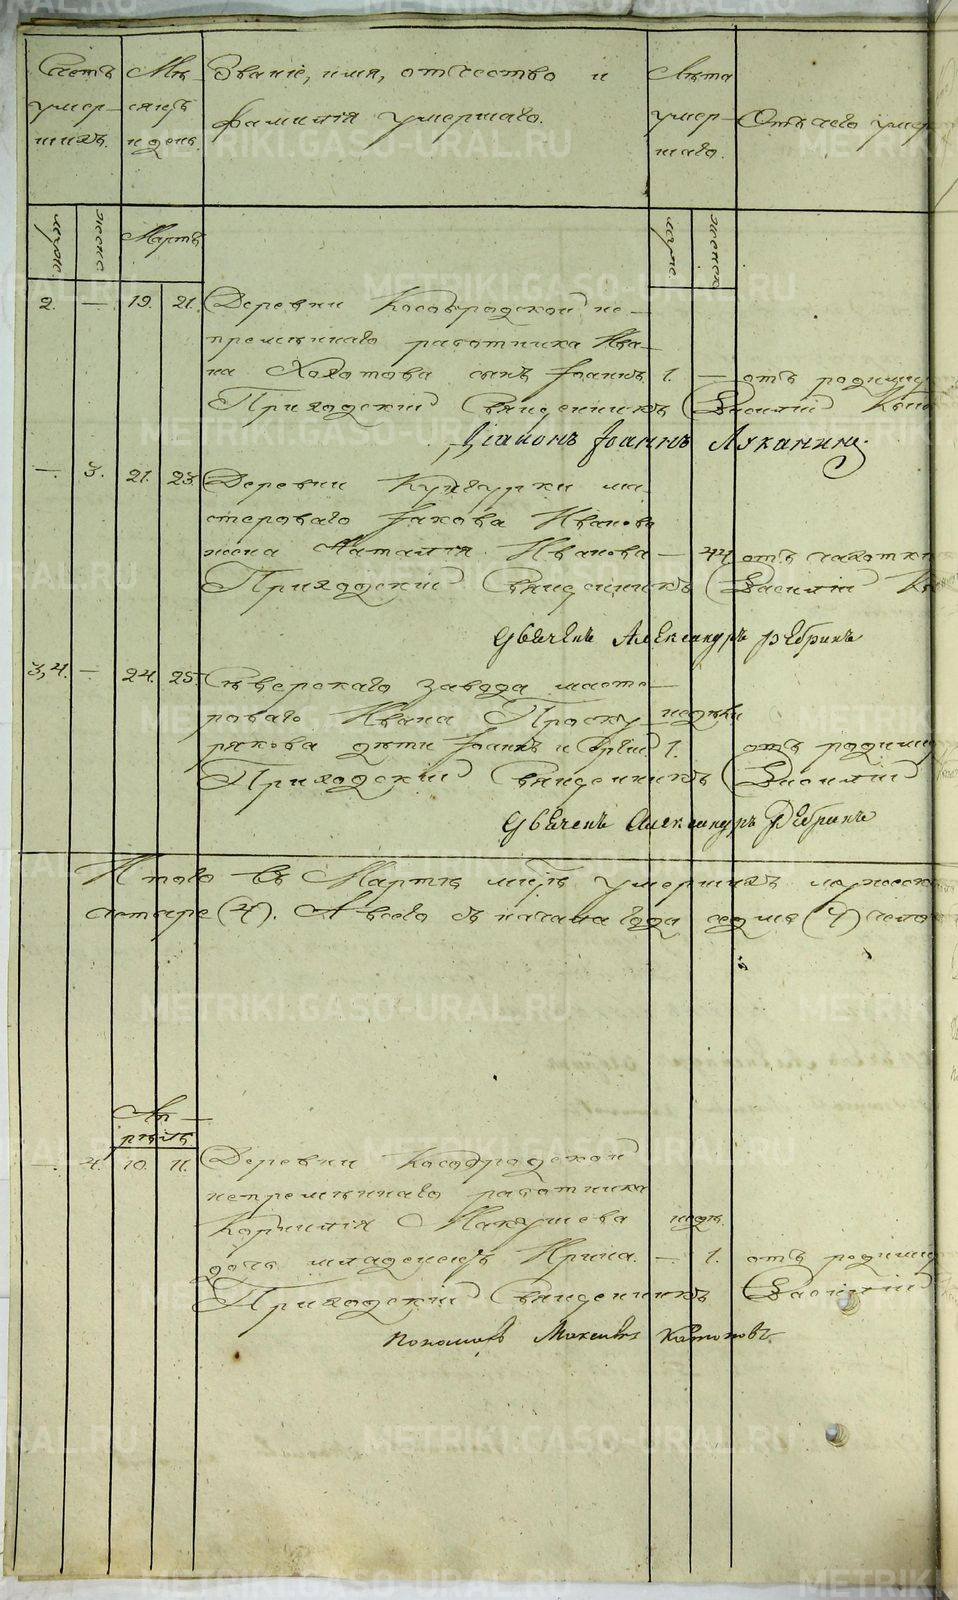 Счетъ умер-шихъ.
Мѣ-сяцъ и день.
Званіе, имя, отчество и
фамилія умершаго.
Лѣта умер-шаго.
Отъ чего умер
муж.
женс.
Мартъ
муж.
женск.
2. — 19. 21. Деревни Кособродской не-
премѣннаго работника Ива-
на Холотова сынъ Іоаннъ 1. — отъ родимц
Приходскій Священникъ Василій
Діаконъ Іоаннъ Луканинъ.
— 3. 21. 23. Деревни Кунгурки ма-
стероваго Іакова Иванова
жена Наталія Иванова — 44 отъ чахотки
Приходскій Священникъ Василій
дьячекъ Александръ Ребринъ
3,4. — 24. 25. Сѣверскаго завода масте-
роваго Ивана Проску- недѣли
рякова дѣти Іоаннъ и 1. отъ родимц
Приходскій Священникъ Василій
дьячекъ Александръ Ребринъ
Итого въ Мартѣ мцѣ умершихъ мужеска
четыре (4). А всего съ начала года седмь (7) чело
Ап-
рѣль.
— 4. 10. 11. Деревни Кособродской
непремѣннаго работника
Корнилія Макушева недѣ.
дочь младенецъ Ирина. — 1. отъ родимц
Приходскій Священникъ Василій
пономарь Максимъ
METRIKI.GASO-URAL.RU